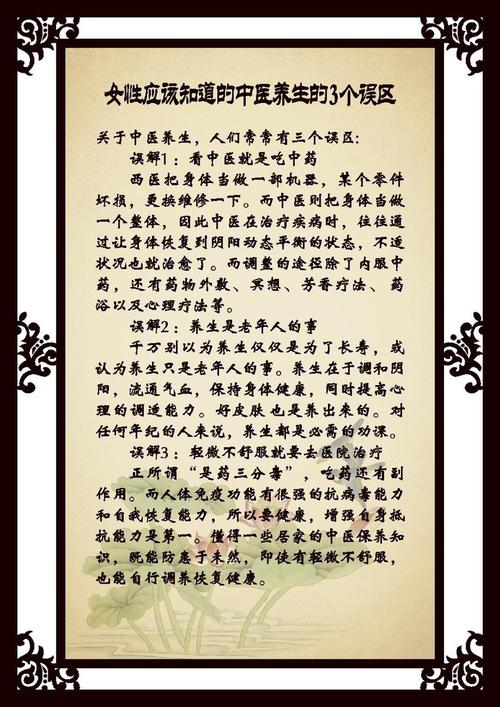 女性应该知道的中医养生的3个误区
关于中医养生，人们常常有三个误区：
误解1：看中医就是吃中药
西医把身体当做一部机器，某个零件
坏损，更换维修一下。而中医则把身体当做
一个整体，因此中医在治疗疾病时，往往通
过让身体恢复到阴阳动态平衡的状态，不适
状况也就治愈了。而调整的途径除了内服中
药，还有药物外敷、冥想、芳香疗法、药
浴以及心理疗法等。
误解2：养生是老年人的事
千万别以为养生仅仅是为了长寿，或
认为养生只是老年人的事。养生在于调和阴
阳，流通气血，保持身体健康，同时提高心
理的调适能力。好皮肤也是养出来的。对
任何年纪的人来说，养生都是必需的功课。
误解3：轻微不舒服就要去医院治疗
正所谓“是药三分毒”，吃药还有副
作用。而人体免疫功能有很强的抗病毒能力
和自我恢复能力，所以要健康，增强自身抵
抗能力是第一。懂得一些居家的中医保养知
识，既能防患于未然，即使有轻微不舒服，
也能自行调养恢复健康。